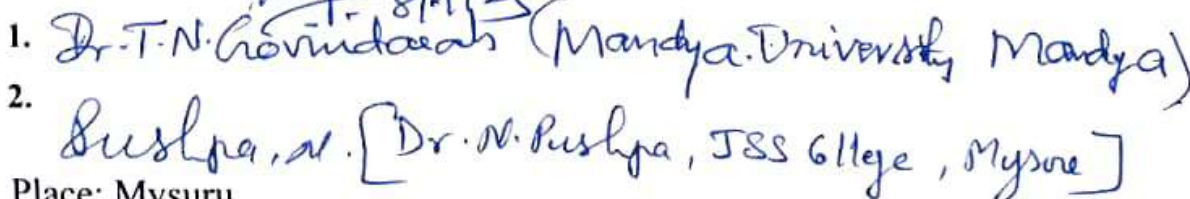 1. Dr. T. N. Govindaraju (Mandya University, Mandya)
2.
Pushpa, N. [Dr. N. Pushpa, JSS College, Mysore]
Place: Mysuru